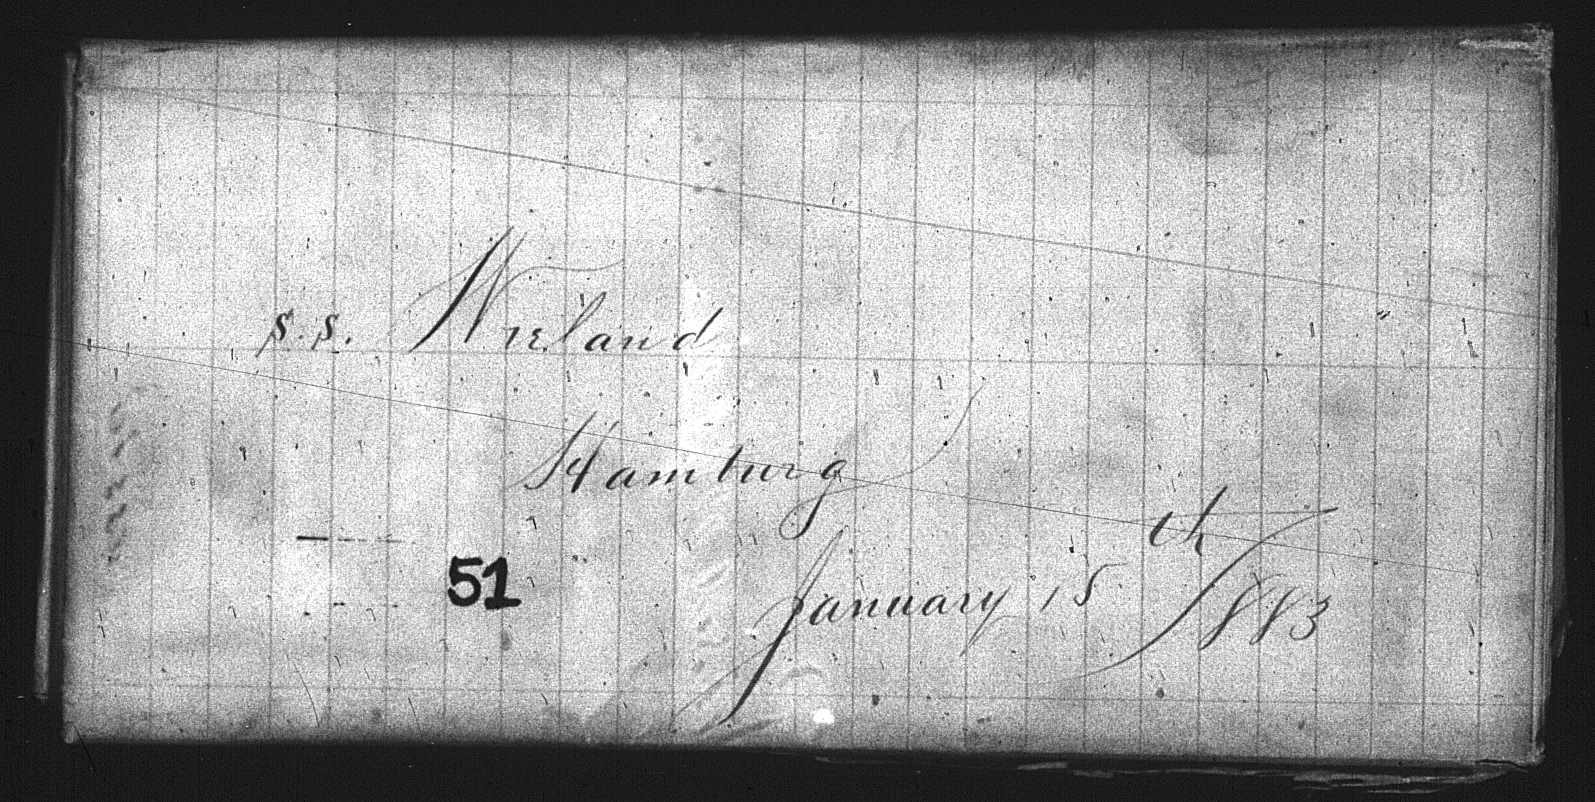 s.s. Wieland
Hamburg
51
January 15th 1883